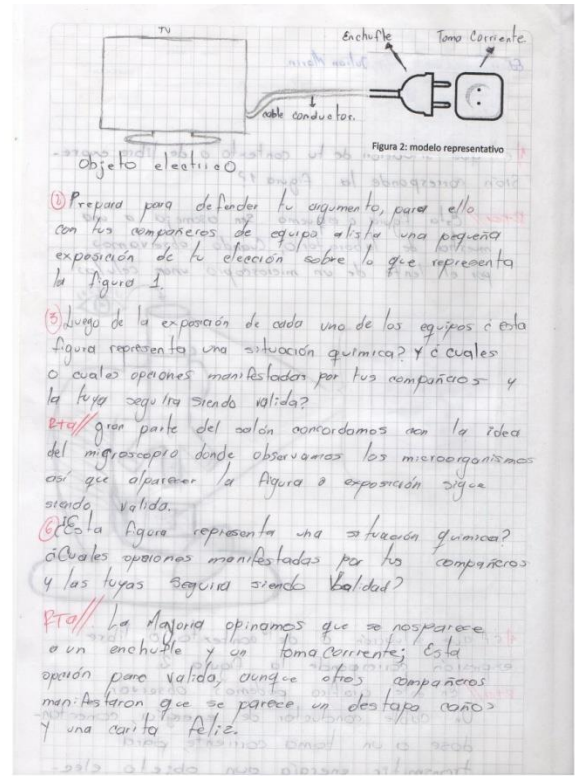 TV
Enchufle
Toma Corriente
cable conductor.
Figura 2: modelo representativo
Objeto electrico
② Prepara para defender tu argumento, para ello
con tus compañeros de equipo alista una pequeña
exposición de tu elección sobre lo que representa
la figura 1.
③ Luego de la exposición de cada uno de los equipos ¿ esta
figura representa una situación química? Y ¿ cuales
o cuales opciones manifestadas por tus compañeros y
la tuya seguira siendo valida?
Rta// gran parte del salón concordamos con la idea
del migroscopio donde observamos los microorganismos
así que alparecer la figura o exposición sigue
siendo valida.
⑥ ¿Esta figura representa una situación quimica?
¿Cuales opciones manifestadas por tus compañeros
y las tuyas seguira siendo Validad?
RTa// La Mayoria opinamos que se nosparece
a un enchufle y un tomacorriente; Esta
opción pare valida, aunque otros compañeros
manifestaron que se parece un destapa caños
Y una carita feliz.